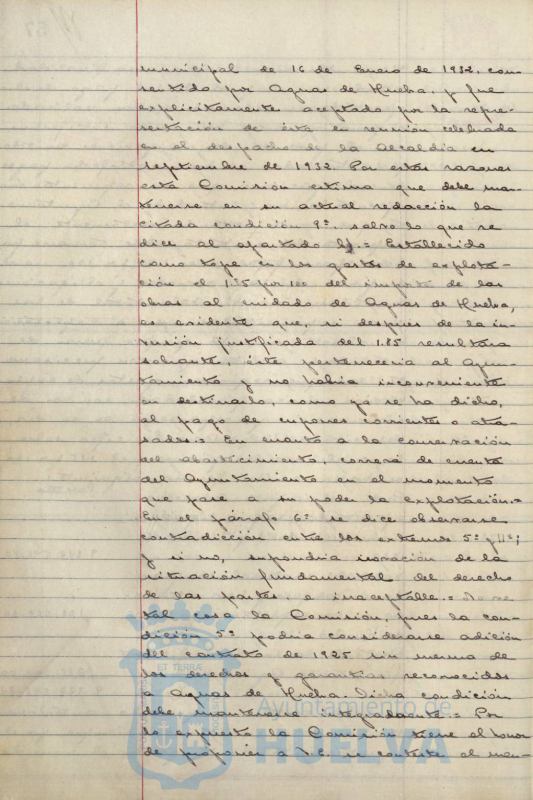 municipal de 16 de Enero de 1932, con-
sentido por Aguas de Huelva, y fue
explicitamente aceptado por la repre-
sentación de ésta en reunión celebrada
en el despacho de la Alcaldía en
Septiembre de 1932. Por estas razones
esta Comisión estima que debe man-
tenerse en su actual redacción la
citada condición 9ª, salvo lo que se
dice al apartado b).= Establecido
como tope en los gastos de explota-
ción el 1.85 por 100 del importe de las
obras al cuidado de Aguas de Huelva,
es evidente que, si despues de la in-
versión justificada del 1.85 resultara
sobrante, éste perteneceria al Ayun-
tamiento y no habia inconveniente
en destinarlo, como ya se ha dicho,
al pago de cupones corrientes o atra-
sados.= En cuanto a la conservación
del abastecimiento, correrá de cuenta
del Ayuntamiento en el momento
que pase a su poder la explotación.=
En el párrafo 6º se dice observarse
contradicción entre los extremos 5º y 11º;
y si no, supondria inovación de la
situación fundamental del derecho
de las partes, e inaceptable.= No se
tal cosa la Comisión, pues la con-
dición 5ª podria considerarse adición
del contrato de 1925 sin merma de
los derechos y garantias reconocidos
a Aguas de Huelva. Dicha condición
debe mantenerse integrante.= Por
lo expuesto la Comisión tiene el honor
de proponer a V.E. se conteste al men-
ET TERRÆ
Ayuntamiento de
HUELVA